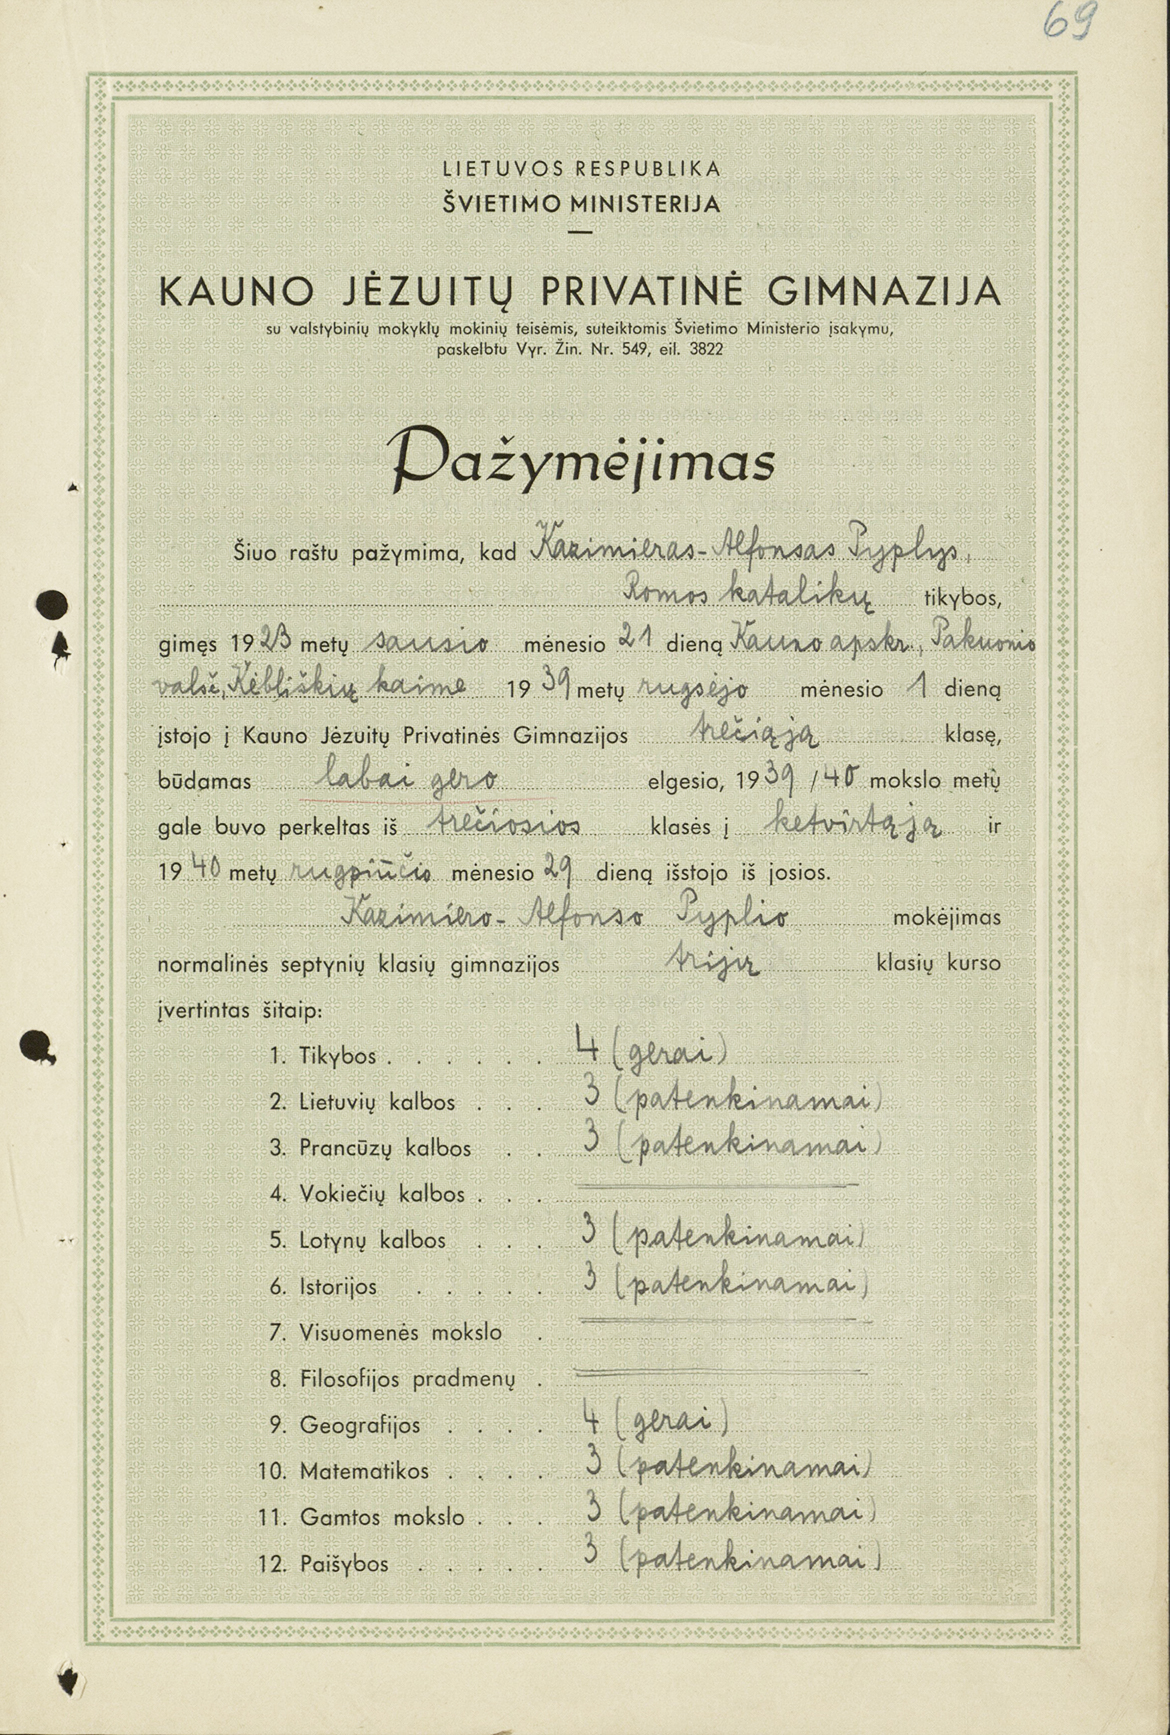 69
LIETUVOS RESPUBLIKA
ŠVIETIMO MINISTERIJA
KAUNO JĖZUITŲ PRIVATINĖ GIMNAZIJA
su valstybinių mokyklų mokinių teisėmis, suteiktomis Švietimo Ministerio įsakymu,
paskelbtu Vyr. Žin. Nr. 549, eil. 3822
Pažymėjimas
Šiuo raštu pažymima, kad Kazimieras-Alfonsas Pyplys,
Romos katalikų tikybos,
gimęs 1923 metų sausio mėnesio 21 dieną Kauno apskr., Pakuonio
valsč, Kėbliškių kaime 1939 metų rugsėjo mėnesio 1 dieną
įstojo į Kauno Jėzuitų Privatinės Gimnazijos trečiąją klasę,
būdamas labai gero elgesio, 1939/40 mokslo metų
gale buvo perkeltas iš trečiosios klasės į ketvirtąją ir
1940 metų rugpiūčio mėnesio 29 dieną išstojo iš josios.
Kazimiero-Alfonso Pyplio mokėjimas
normalinės septynių klasių gimnazijos trijų klasių kurso
įvertintas šitaip:
1. Tikybos . . . . . . 4 (gerai)
2. Lietuvių kalbos . . . 3 (patenkinamai)
3. Prancūzų kalbos . . 3 (patenkinamai)
4. Vokiečių kalbos . . .
5. Lotynų kalbos . . . 3 (patenkinamai)
6. Istorijos . . . . . 3 (patenkinamai)
7. Visuomenės mokslo .
8. Filosofijos pradmenų .
9. Geografijos . . . . 4 (gerai)
10. Matematikos . . . . 3 (patenkinamai)
11. Gamtos mokslo . . . 3 (patenkinamai)
12. Paišybos . . . . . 3 (patenkinamai)